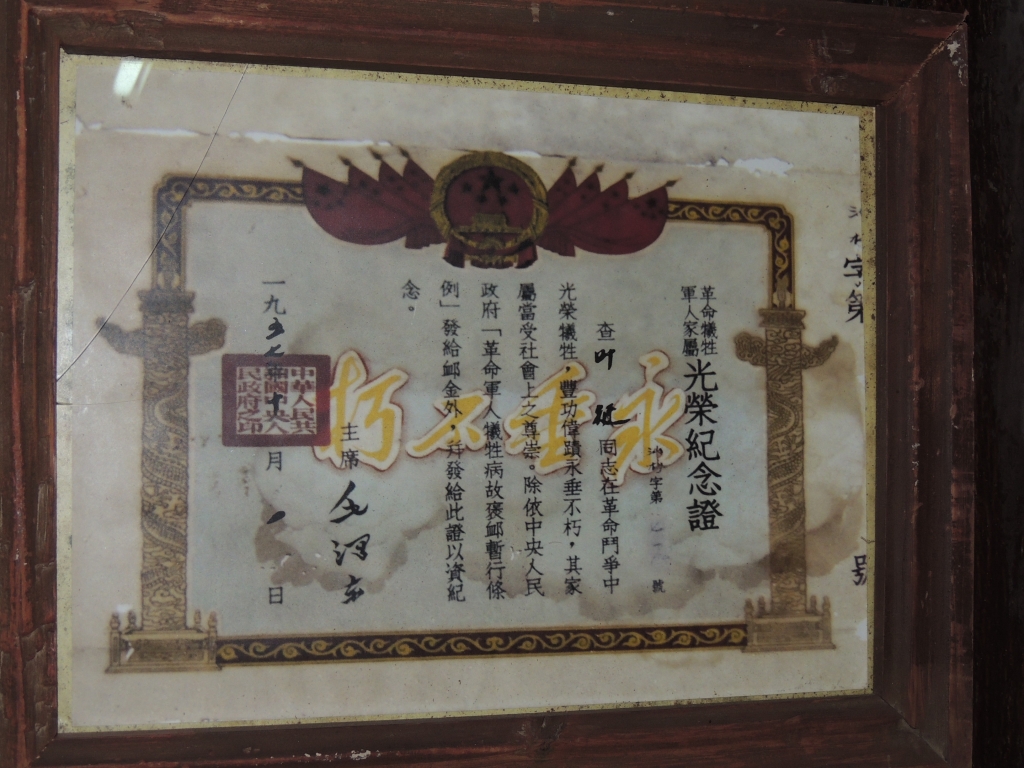 革命犧牲
軍人家屬
光榮紀念證
字第 號
查叶挺同志在革命鬥爭中
光榮犧牲，豐功偉蹟永垂不朽，其家
屬當受社會上之尊崇。除依中央人民
政府「革命軍人犧牲病故褒卹暫行條
例」發給卹金外，并發給此證以資紀
念。
主席 毛澤东
一九五 年 月 日
永垂不朽
中華人民共
和國中央人
民政府之印
字第
號